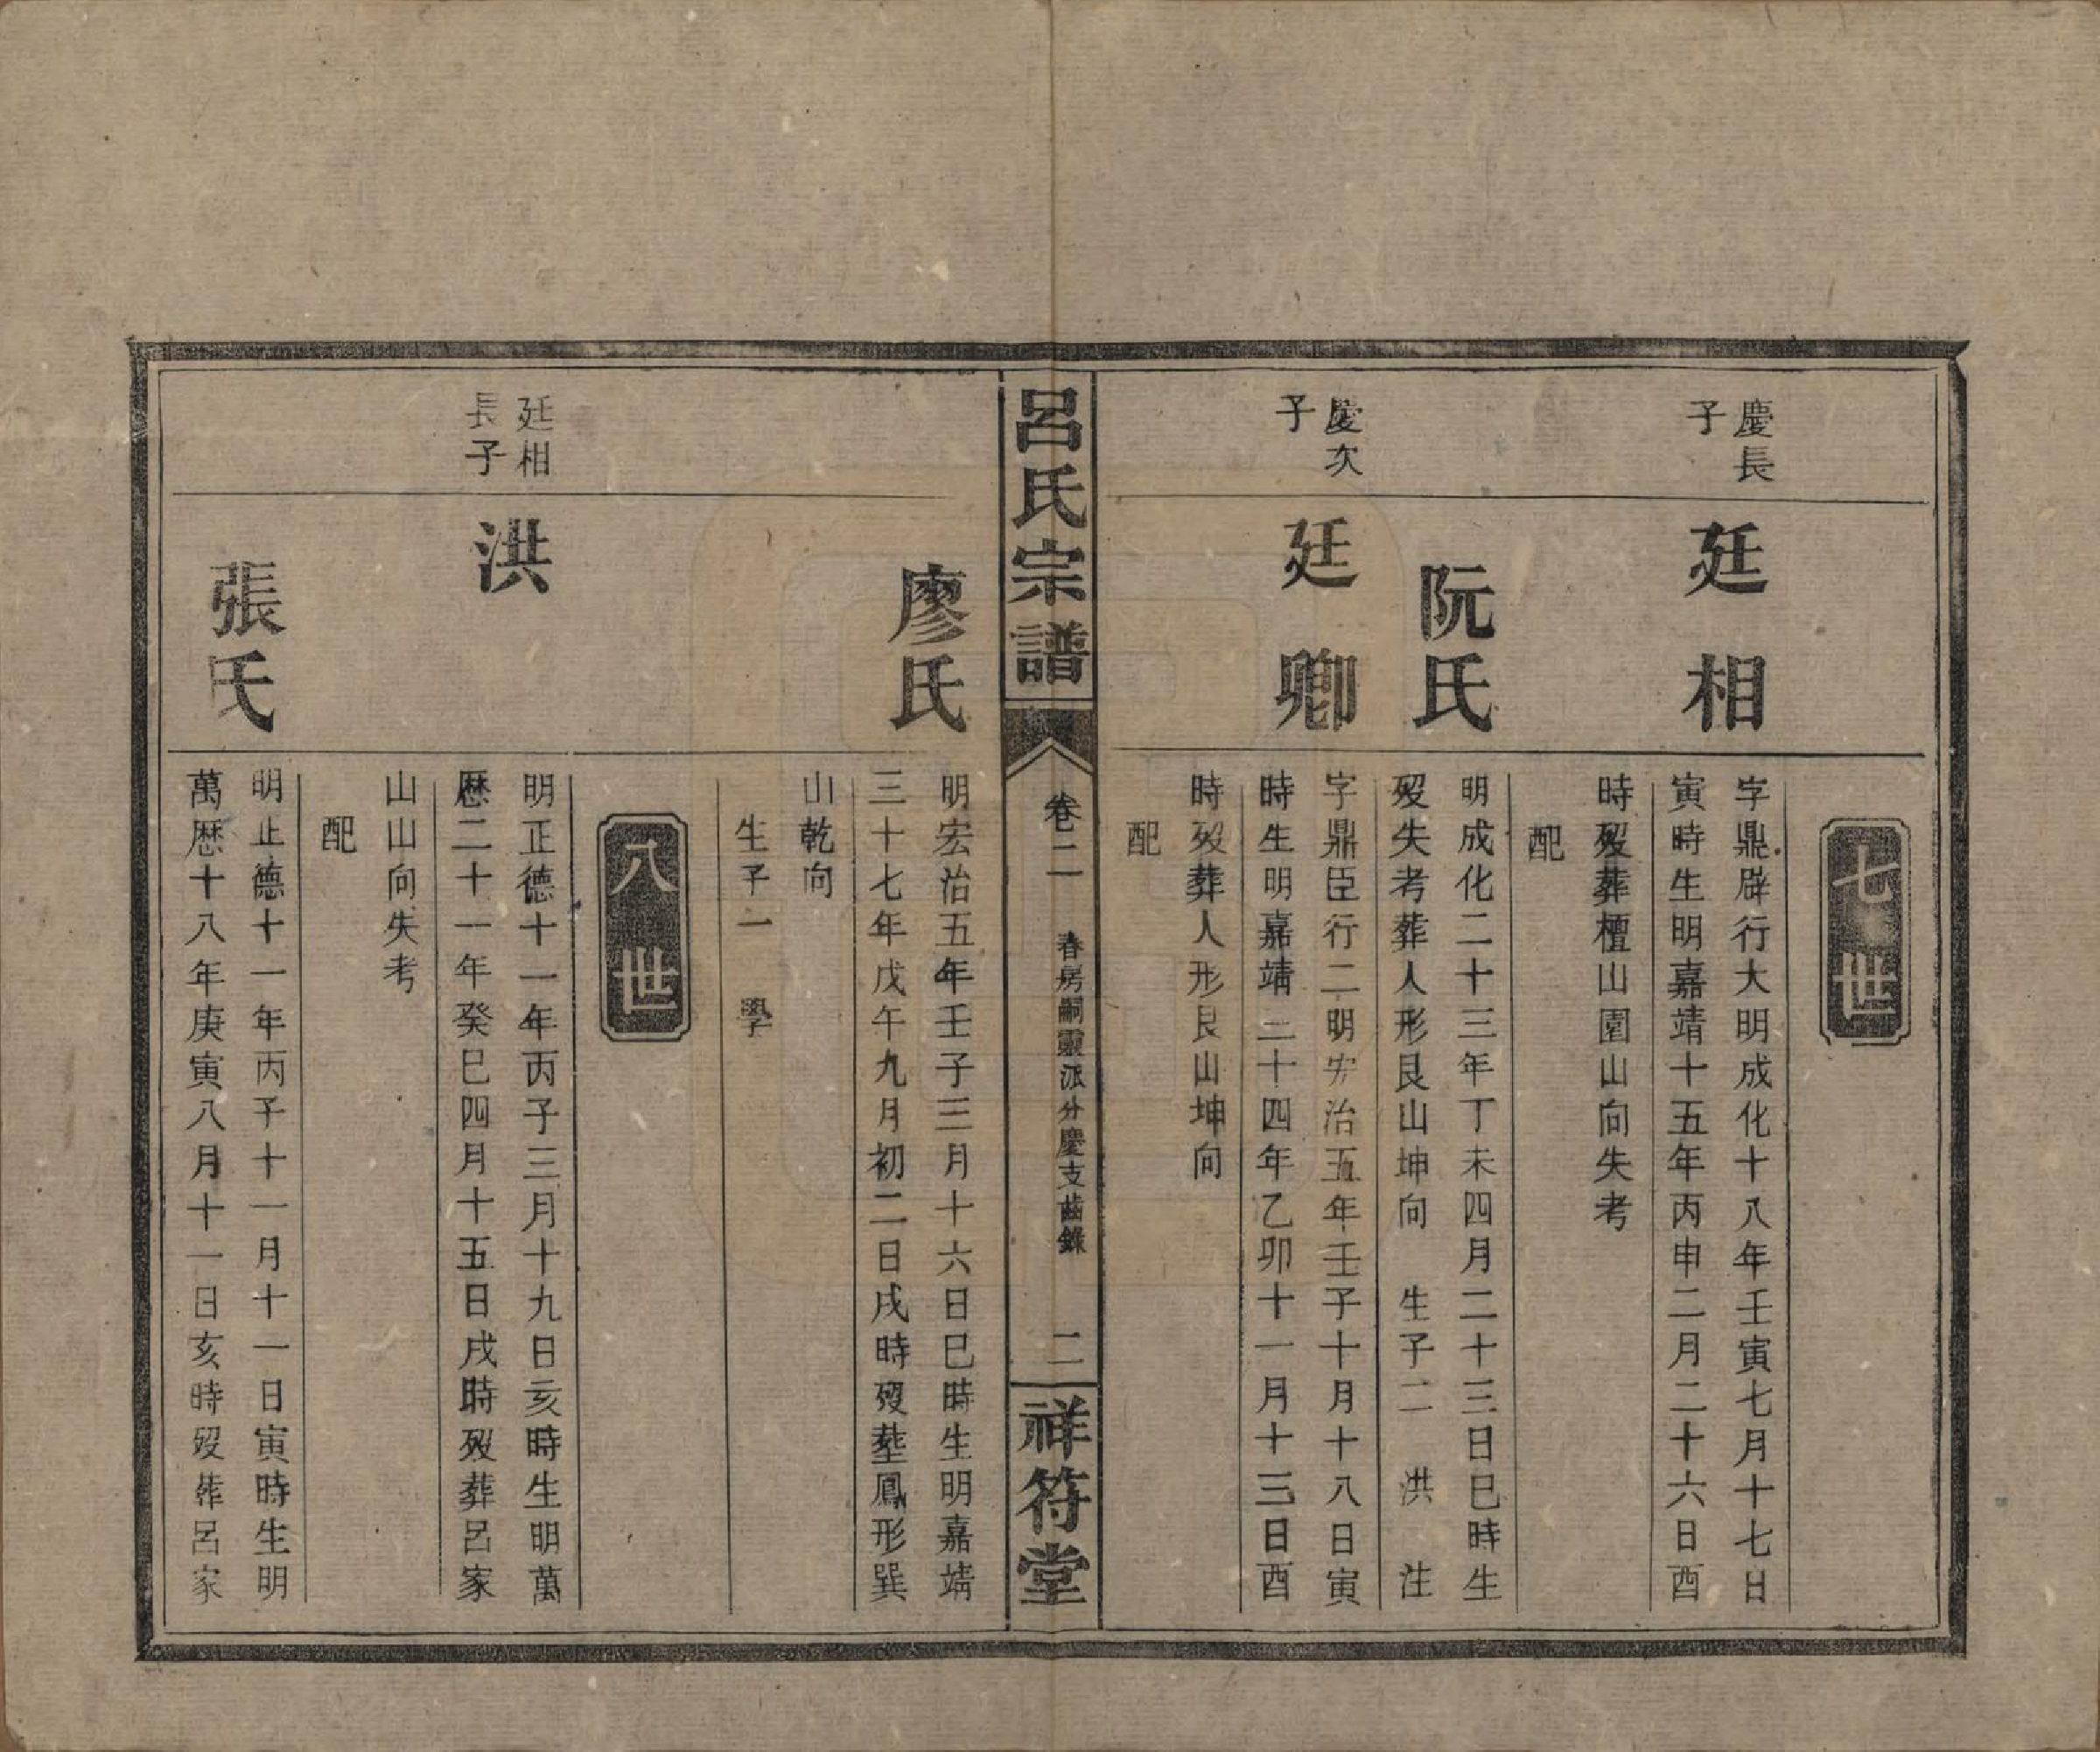 七世
慶長
子
廷相
字鼎辟行大明成化十八年壬寅七月十七日
寅時生明嘉靖十五年丙申二月二十六日酉
時歿葬檀山園山向失考
配
阮氏
明成化二十三年丁未四月二十三日巳時生
歿失考葬人形艮山坤向 生子二 洪 注
慶次
子
廷卿
字鼎臣行二明宏治五年壬子十月十八日寅
時生明嘉靖三十四年乙卯十一月十三日酉
時歿葬人形艮山坤向
配
呂氏宗譜
卷二 春房嗣靈派分慶支齒錄 二
祥符堂
廖氏
明宏治五年壬子三月十六日巳時生明嘉靖
三十七年戊午九月初二日戌時歿塟鳳形巽
山乾向
生子一 學
八世
廷相
長子
洪
明正德十一年丙子三月十九日亥時生明萬
歷二十一年癸巳四月十五日戌時歿葬呂家
山山向失考
配
張氏
明正德十一年丙子十一月十一日寅時生明
萬歷十八年庚寅八月十一日亥時歿葬呂家